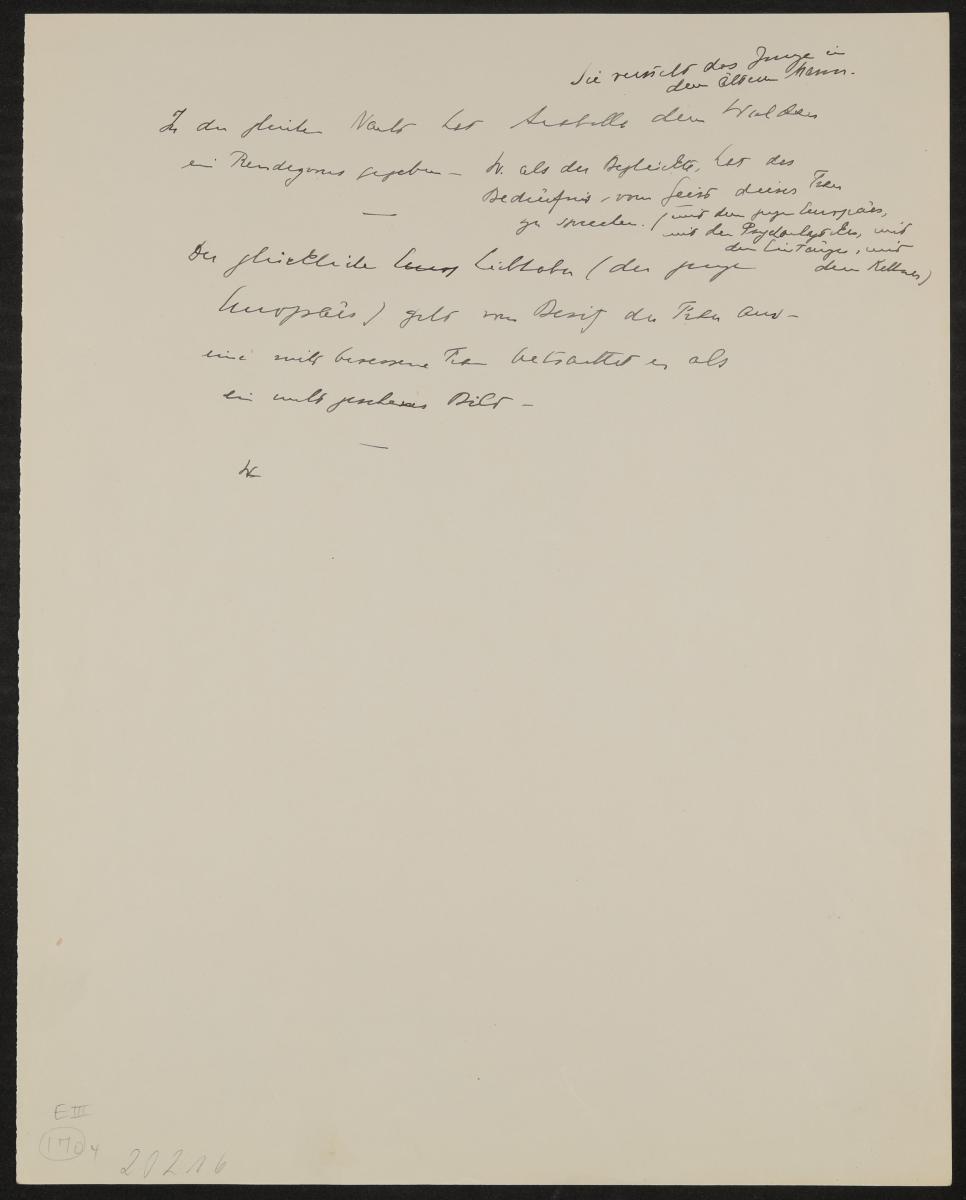 Sie versucht das Junge in
dem ältern Mann.
In der gleichen Nacht hat Arabella dem Waldau
ein Rendezvous gegeben – W. als der Beglückte, hat das
Bedürfnis, vom Geist dieser Frau
zu sprechen. (mit dem jungen Europäer,
mit der Psychoanalytikerin, mit
dem Eintänzer, mit
dem Kellner)
—
Der glückliche Liebhaber (der junge
Europäer) geht vom Besitz der Frau aus –
eine nicht besessene Frau betrachtet er als
ein nicht gesehenes Bild –
—
W
E III
170 4
20216